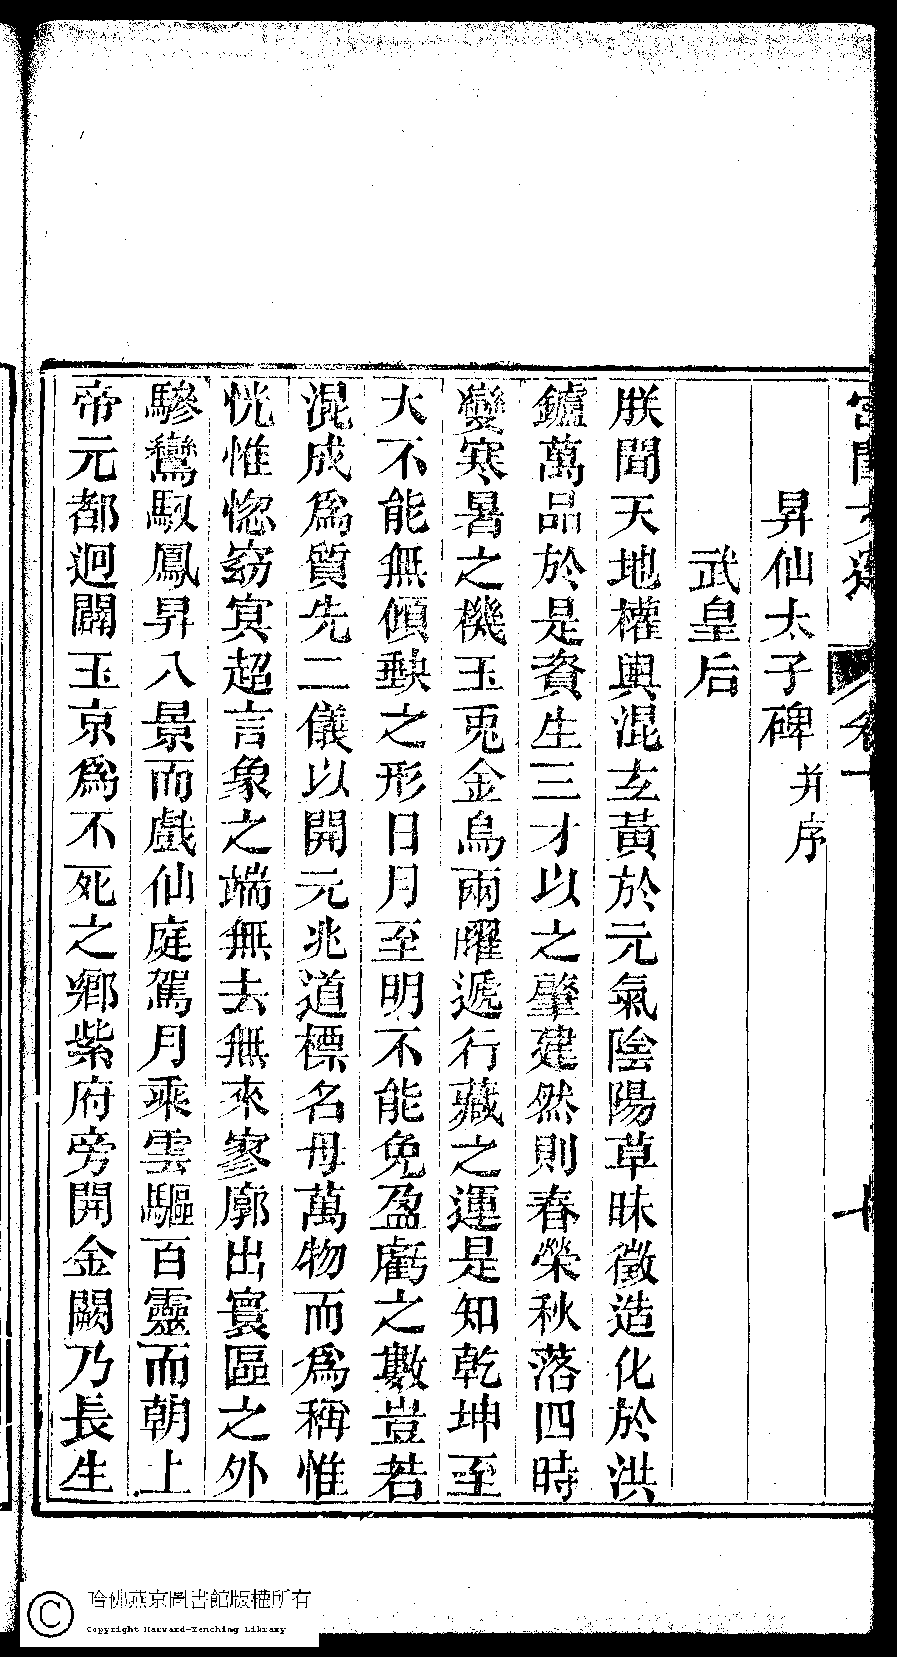 昇仙太子碑并序
武皇后
朕聞天地權輿混玄黃於元氣陰陽草昧徵造化於洪
鑪萬品於是資生三才以之肇建然則春榮秋落四時
變寒暑之機玉兎金烏兩曜遞行藏之運是知乾坤至
大不能無傾缺之形日月至明不能免盈虧之數豈若
混成爲質先二儀以開元兆道標名母萬物而爲稱惟
恍惟惚窈冥超言象之端無去無來寥廓出寰區之外
驂鸞馭鳳昇八景而戲仙庭駕月乘雲驅百靈而朝上
帝元都迥闢玉京爲不死之鄉紫府旁開金闕乃長生
哈佛燕京圖書館版權所有
Copyright Harvard-Yenching Library